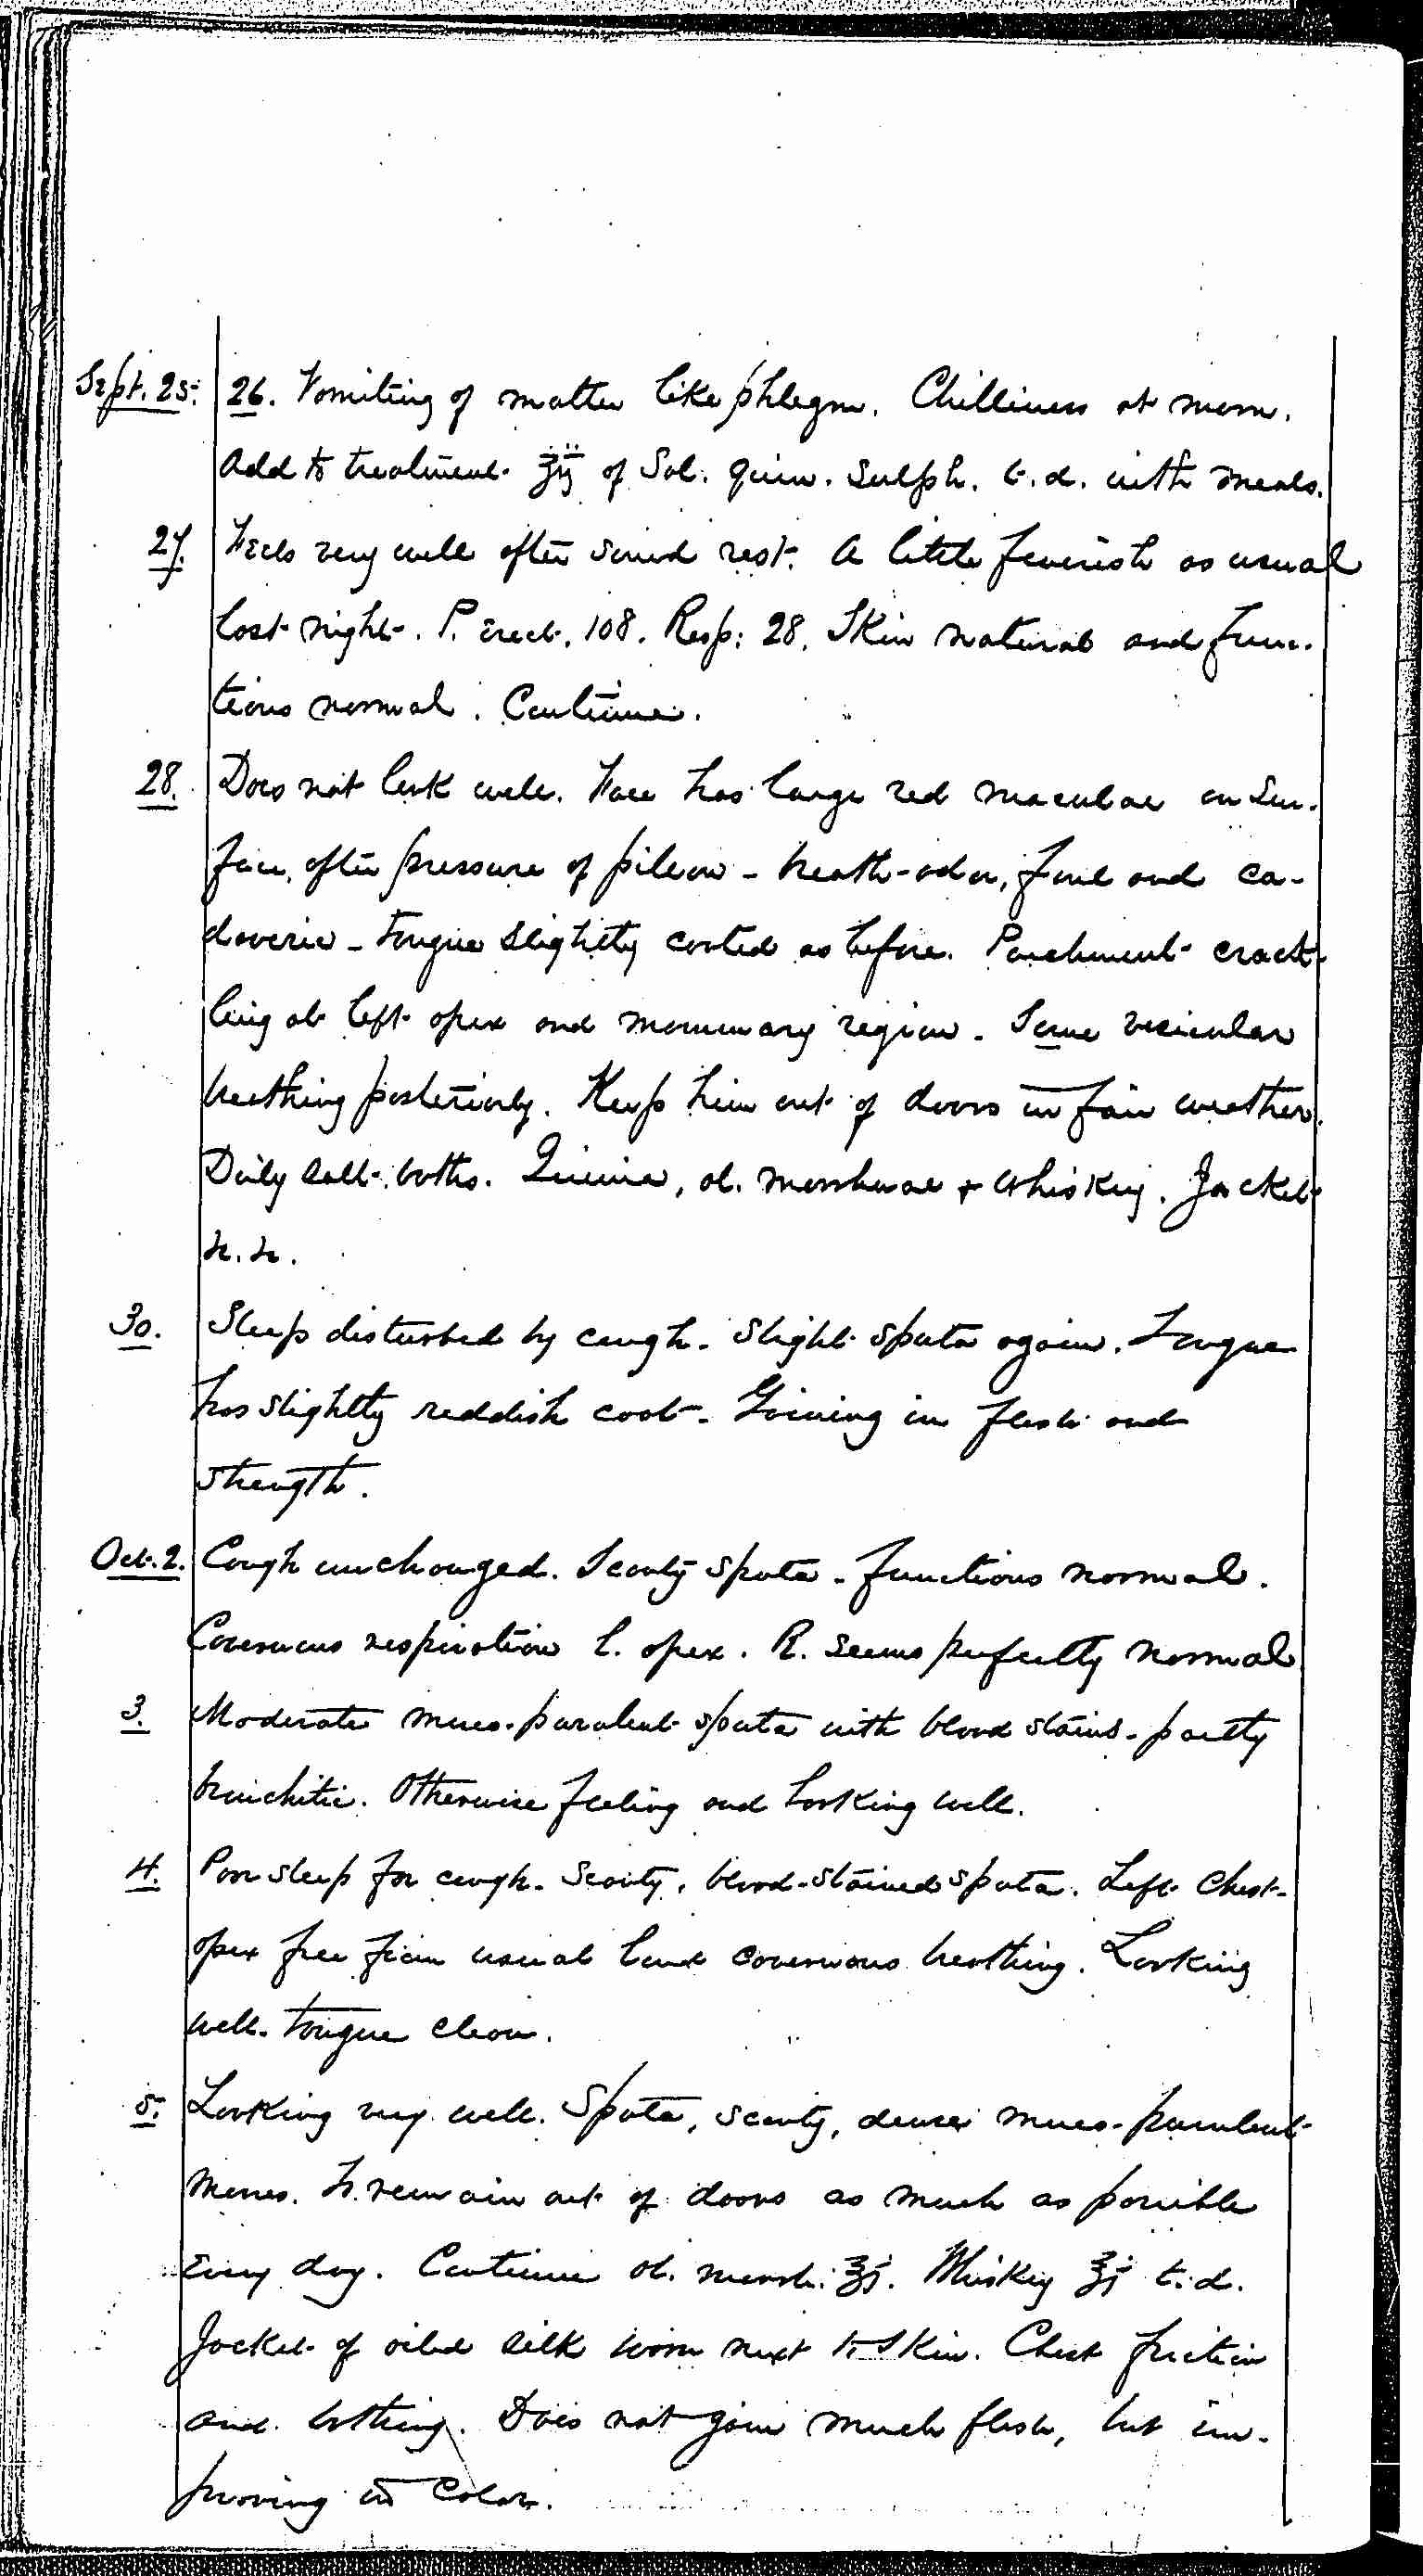 Sept. 25. 26. Vomiting of matter like phlegm. Chilliness at morn.
Add to treatment ʒij of Sol. Quin. Sulph. t.d. with meals.
27. Feels very well after sound rest. A little feverish as usual
last night. P. erect. 108. Resp: 28. Skin natural and func-
tions normal. Continue.
28. Does not look well. Face has large red maculae on sur-
face, after pressure of pillow - breath-odor, foul and ca-
daveric - Tongue slightly coated as before. Parchment crack-
ling at left apex and mammary region. Some vesicular
breathing posteriorly. Keep him out of doors in fair weather.
Daily salt baths. Quinia, ol. morrhuae + whiskey. Jacket
n.n.
30. Sleep disturbed by cough. Slight sputa again. Tongue
has slightly reddish coat. Gaining in flesh and
strength.
Oct. 2. Cough unchanged. Scanty sputa - functions normal.
Cavernous respiration l. apex. R. seems perfectly normal
3. Moderate muco-purulent sputa with blood stains - partly
bronchitic. Otherwise feeling and looking well.
4. Poor sleep for cough. Scanty, blood-stained sputa. Left chest-
apex free from usual loud cavernous breathing. Looking
well. Tongue clean.
5. Looking very well. Sputa, scanty, dense muco-purulent
masses. To remain out of doors as much as possible
every day. Continue ol. morrh. ℥j. Whiskey ℥j t.d.
Jacket of oiled silk worn next to skin. Chest friction
and bathing. Does not gain much flesh, but im-
proving in color.